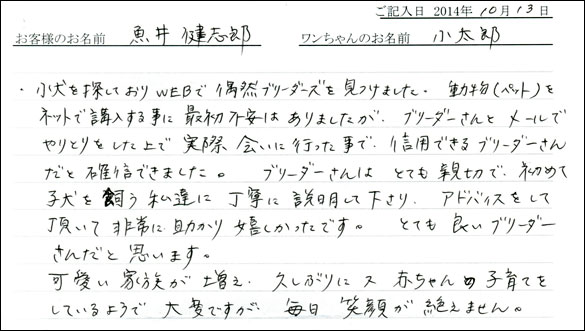 ご記入日 2014年10月13日
お客様のお名前 魚井 健志郎 ワンちゃんのお名前 小太郎
・小犬を探しておりWEBで偶然ブリーダーズを見つけました。動物(ペット)を
ネットで購入する事に最初不安はありましたが、ブリーダーさんとメールで
やりとりをした上で実際会いに行った事で、信用できるブリーダーさん
だと確信できました。 ブリーダーさんはとても親切で、初めて
子犬を飼う私達に丁寧に説明して下さり、アドバイスをして
頂いて非常に助かり嬉しかったです。 とても良いブリーダー
さんだと思います。
可愛い家族が増え、久しぶりに又赤ちゃんの子育てを
しているようで大変ですが毎日笑顔が絶えません。